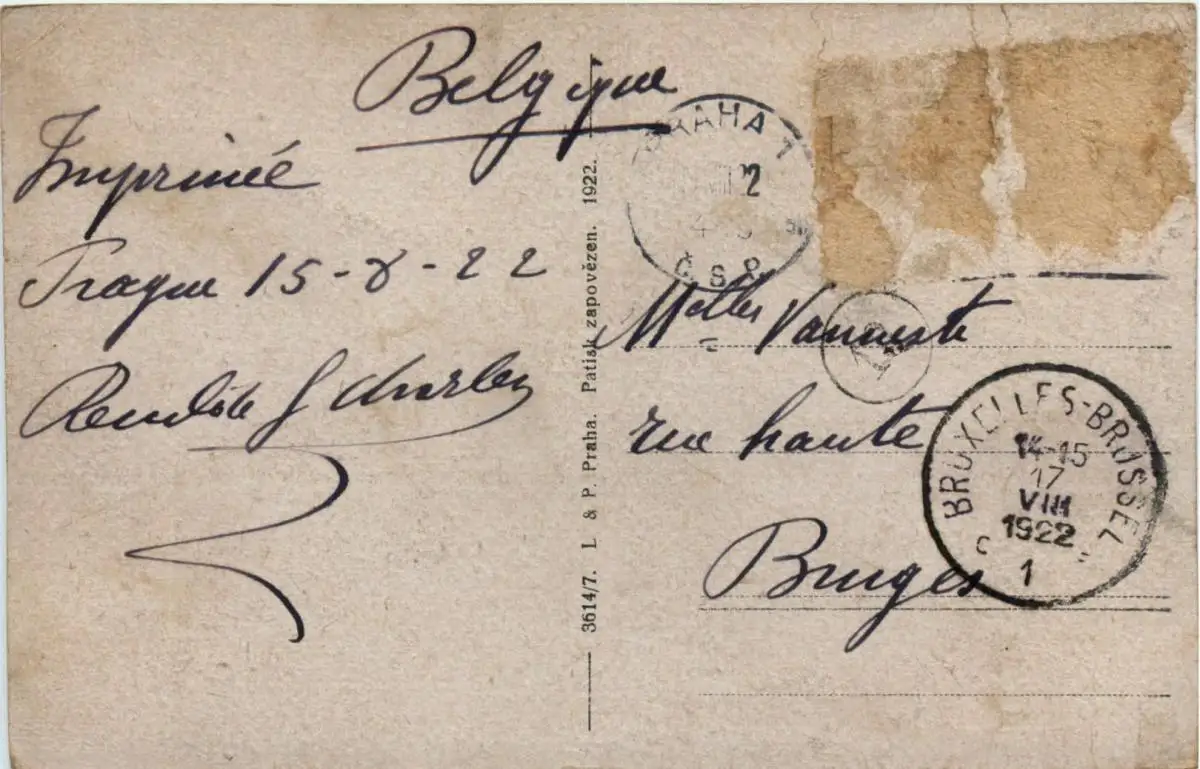 Belgique
Imprimé
Prague 15-8-22
Charles
3614/7. L & P. Praha. Patisk zapovězen. 1922.
PRAHA 1
VIII 22
ČSR
Melles Vanneste
rue haute
Bruges
BRUXELLES-BRUSSEL
14-15
17
VIII
1922
C 1